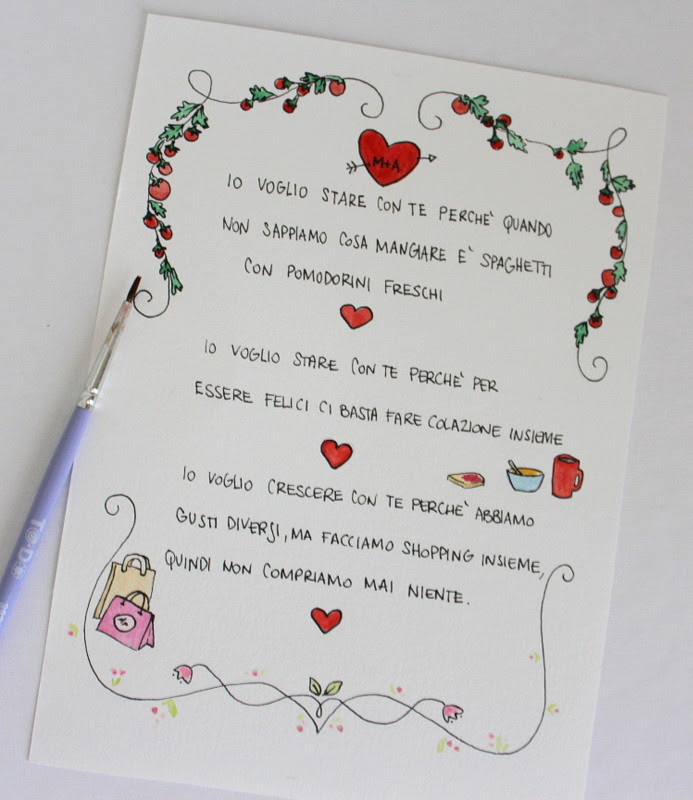 M+A
IO VOGLIO STARE CON TE PERCHE' QUANDO
NON SAPPIAMO COSA MANGIARE E' SPAGHETTI
CON POMODORINI FRESCHI
IO VOGLIO STARE CON TE PERCHE' PER
ESSERE FELICI CI BASTA FARE COLAZIONE INSIEME
IO VOGLIO CRESCERE CON TE PERCHE' ABBIAMO
GUSTI DIVERSI, MA FACCIAMO SHOPPING INSIEME,
QUINDI NON COMPRIAMO MAI NIENTE.
%